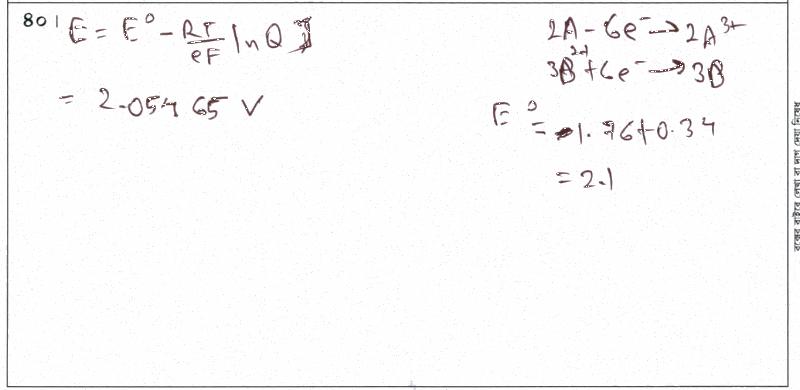 80| E = E° - RT/eF ln Q
= 2.05465 V
2A - 6e⁻ → 2A³⁺
3B²⁺ + 6e⁻ → 3B
E° = 1.76 + 0.34
= 2.1